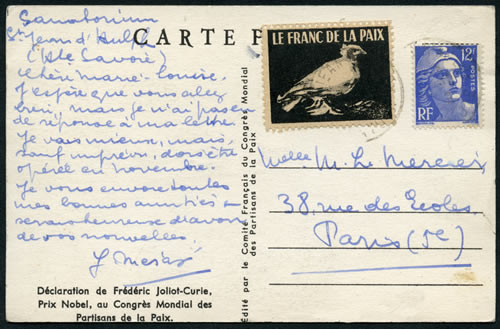 Sanatorium
St Jean d'Aulph
(Hte Savoie)
Chère Marie-Louise,
J'espère que vous allez
bien, mais je n'ai pas eu
de réponse à ma lettre.
Je vais mieux, mais,
sauf imprévu, dois être
opéré en novembre.
Je vous envoie toutes
mes bonnes amitiés et
serais heureux d'avoir
de vos nouvelles.
Déclaration de Frédéric Joliot-Curie,
Prix Nobel, au Congrès Mondial des
Partisans de la Paix.
Édité par le Comité Français du Congrès Mondial
des Partisans de la Paix
CARTE P
LE FRANC DE LA PAIX
12F
POSTES
RF
Melle M. L. Mercier
38, rue des Ecoles
Paris (5e)